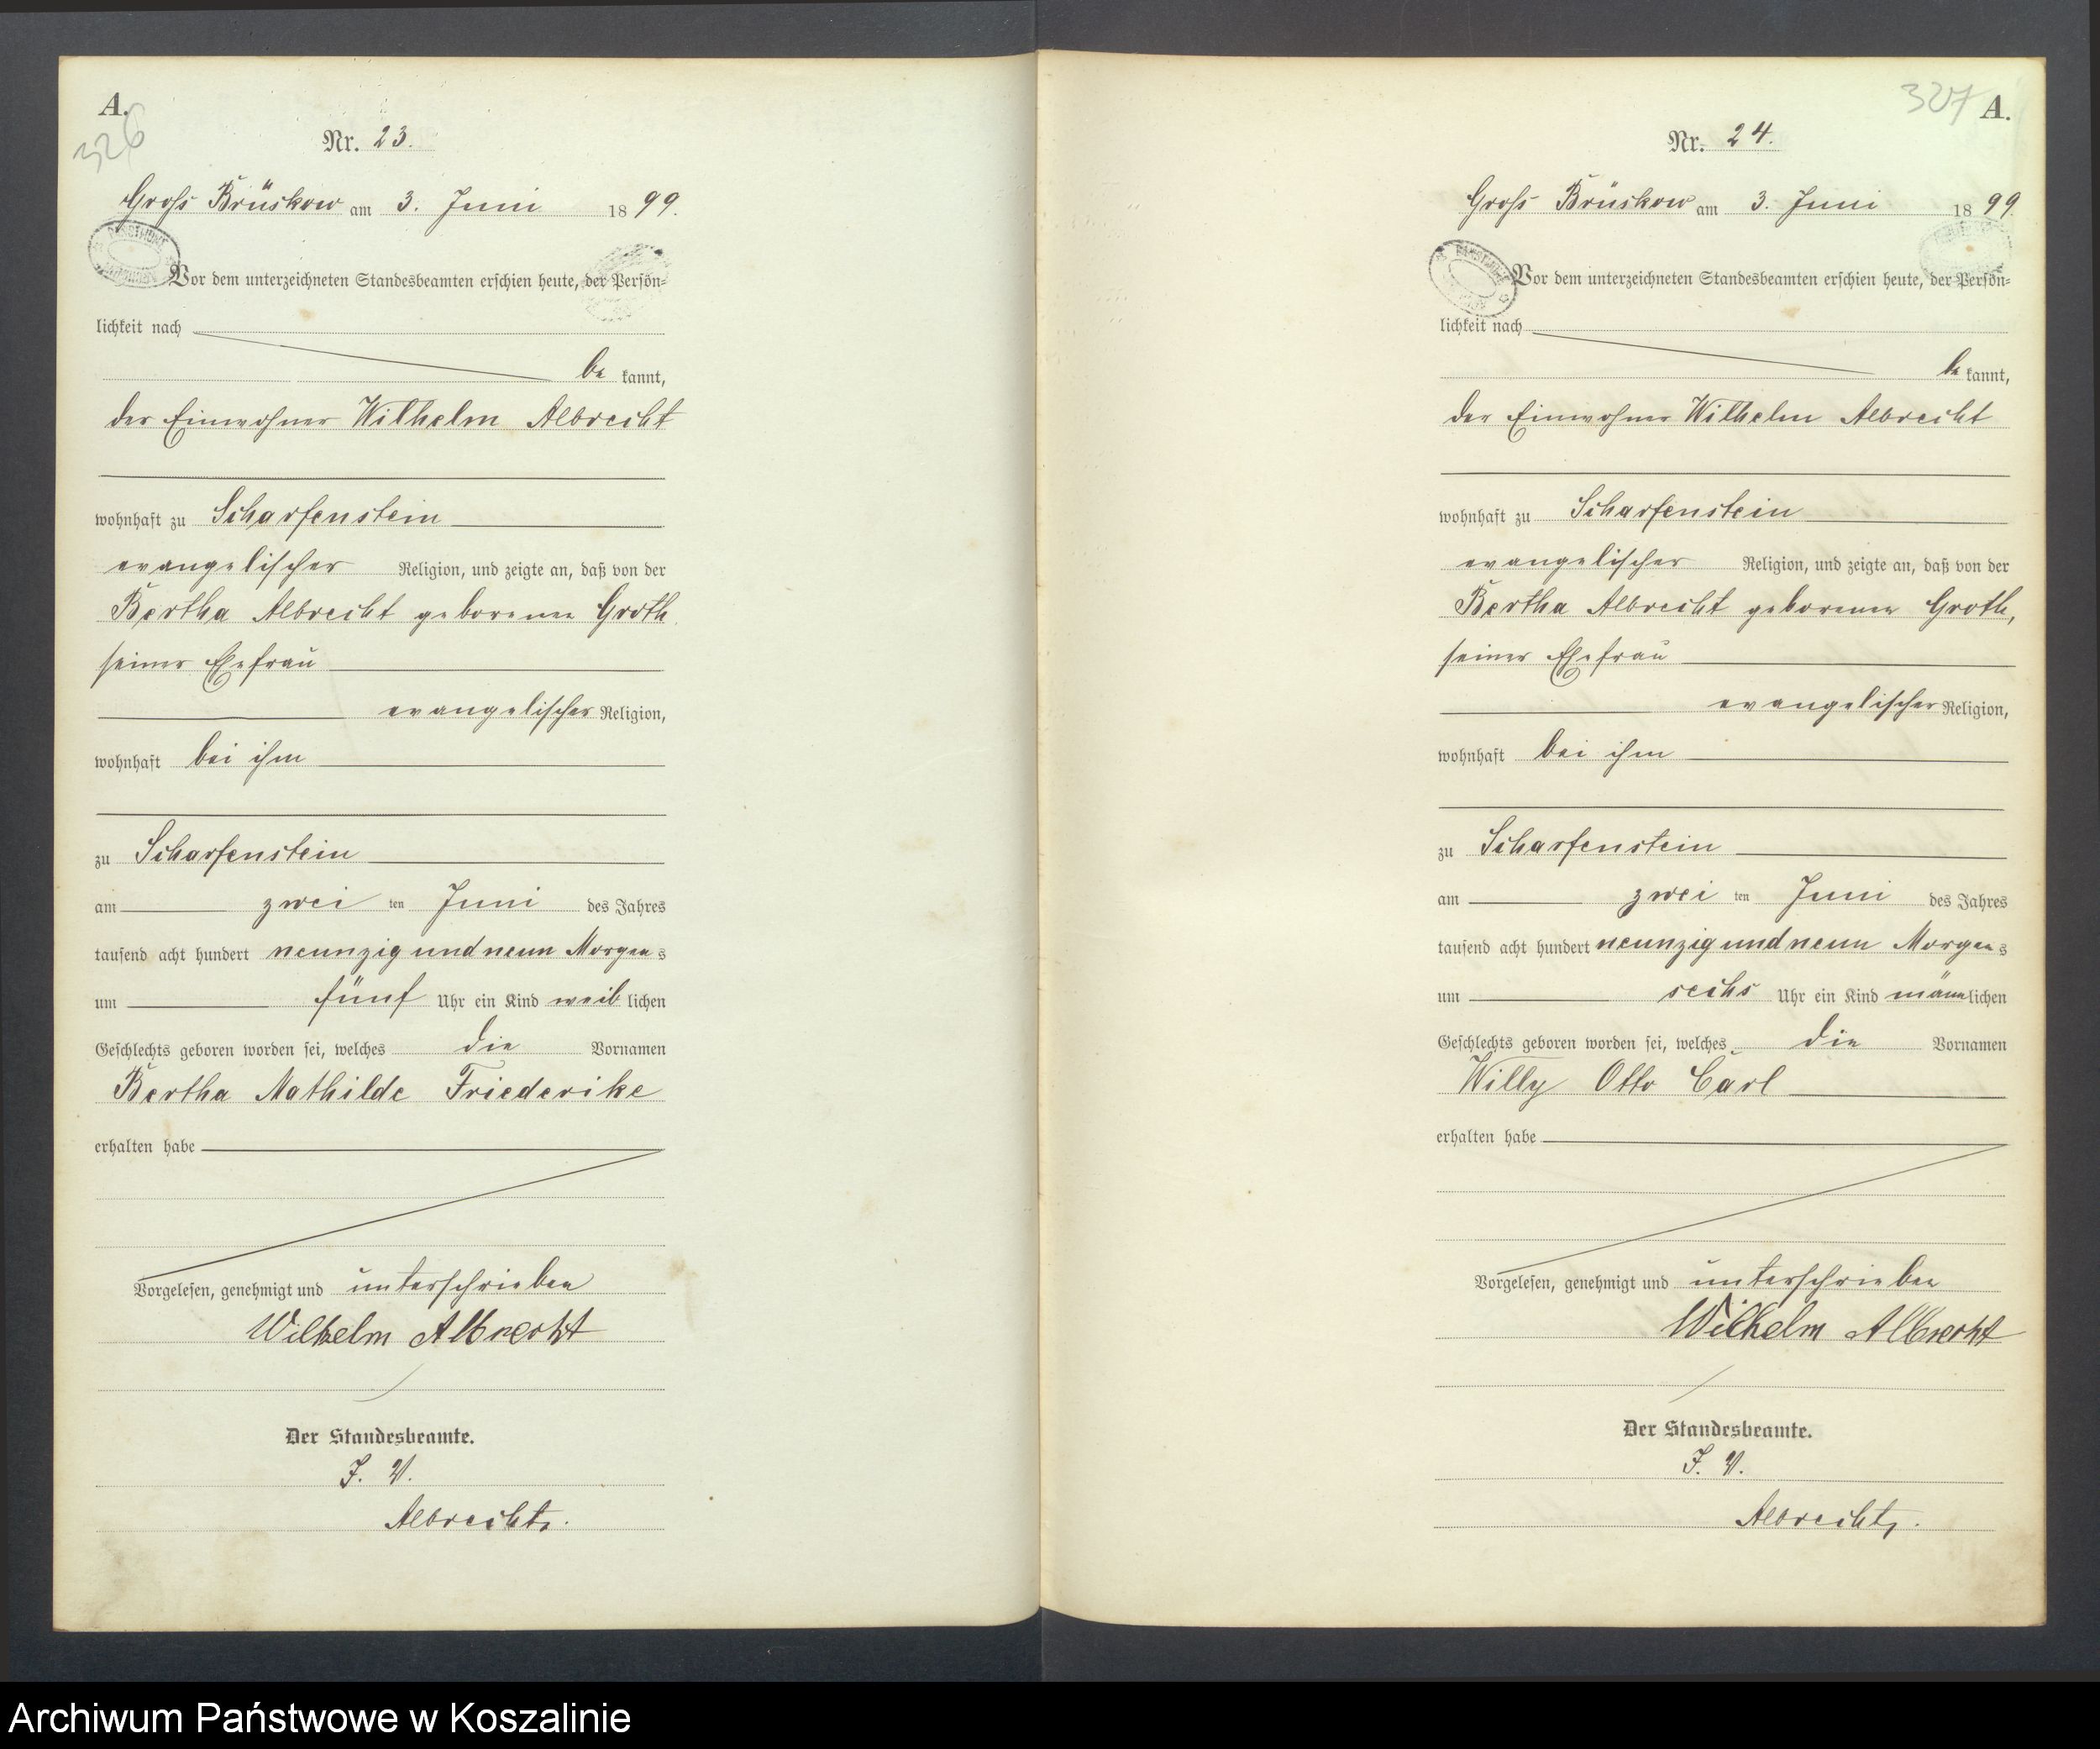 A.
326
Nr. 23.
Groß Brüskow am 3. Juni 1899.
Vor dem unterzeichneten Standesbeamten erschien heute, der Persön-
lichkeit nach
be kannt,
der Einwohner Wilhelm Albrecht
wohnhaft zu Scharfenstein
evangelischer Religion, und zeigte an, daß von der
Bertha Albrecht geborene Groth
seiner Ehefrau
evangelischer Religion,
wohnhaft bei ihm
zu Scharfenstein
am zwei ten Juni des Jahres
tausend acht hundert neunzig und neun Morgens
um fünf Uhr ein Kind weib lichen
Geschlechts geboren worden sei, welches die Vornamen
Bertha Mathilde Friederike
erhalten habe
Vorgelesen, genehmigt und unterschrieben
Wilhelm Albrecht
Der Standesbeamte.
J. V.
Albrecht.
327 A.
Nr. 24.
Groß Brüskow am 3. Juni 1899.
Vor dem unterzeichneten Standesbeamten erschien heute, der Persön-
lichkeit nach
be kannt,
der Einwohner Wilhelm Albrecht
wohnhaft zu Scharfenstein
evangelischer Religion, und zeigte an, daß von der
Bertha Albrecht geborene Groth,
seiner Ehefrau
evangelischer Religion,
wohnhaft bei ihm
zu Scharfenstein
am zwei ten Juni des Jahres
tausend acht hundert neunzig und neun Morgens
um sechs Uhr ein Kind männlichen
Geschlechts geboren worden sei, welches die Vornamen
Willy Otto Carl
erhalten habe
Vorgelesen, genehmigt und unterschrieben
Wilhelm Albrecht
Der Standesbeamte.
J. V.
Albrecht.
Archiwum Państwowe w Koszalinie